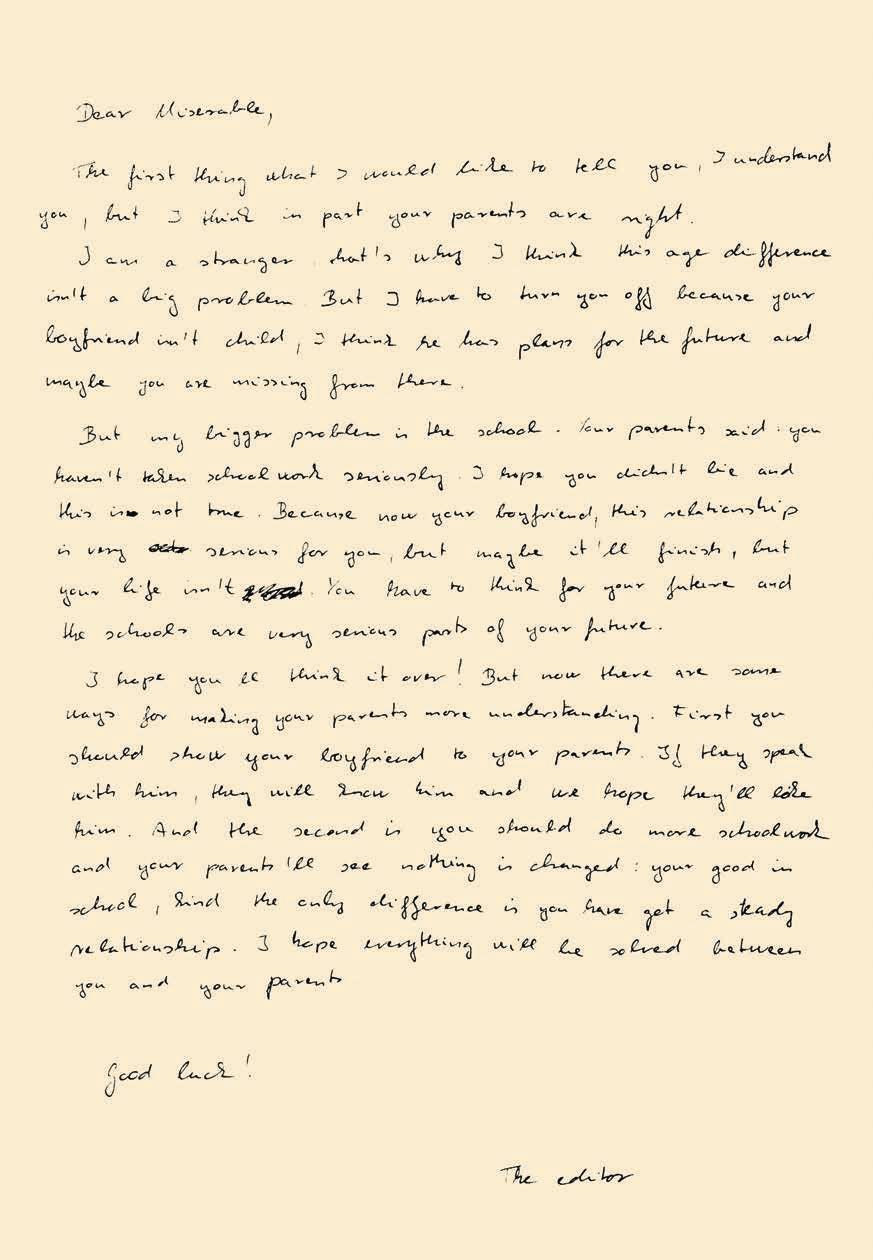 Dear Miserable,
The first thing what I would like to tell you, I understand
you, but I think in part your parents are right.
I am a stranger that's why I think this age difference
isn't a big problem. But I have to turn you off because your
boyfriend isn't child, I think he has plans for the future and
maybe you are missing from there.
But my bigger problem is the school. Your parents said: you
haven't taken schoolwork seriously. I hope you didn't lie and
this is not true. Because now your boyfriend, this relationship
is very serious for you, but maybe it'll finish, but
your life isn't. You have to think for your future and
the schools are very serious parts of your future.
I hope you'll think it over! But now there are some
ways for making your parents more understanding. First you
should show your boyfriend to your parents. If they speak
with him, they will know him and we hope they'll like
him. And the second is you should do more schoolwork
and your parents'll see nothing is changed: your good in
school, kind the only difference is you have got a steady
relationship. I hope everything will be solved between
you and your parents
Good luck!
The editor